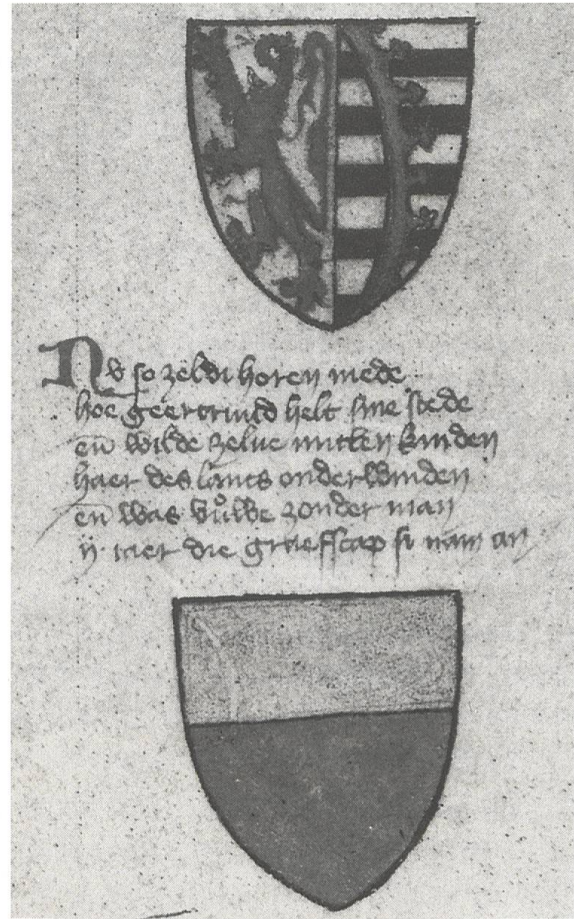 Nv so zeldi horen mede
hoe geertruid helt sine stede
en̄ wilde zelue mitten kinden
haer des lants onderwinden
en̄ was vůwe zonder man
ij iaer die graefscap si nam an